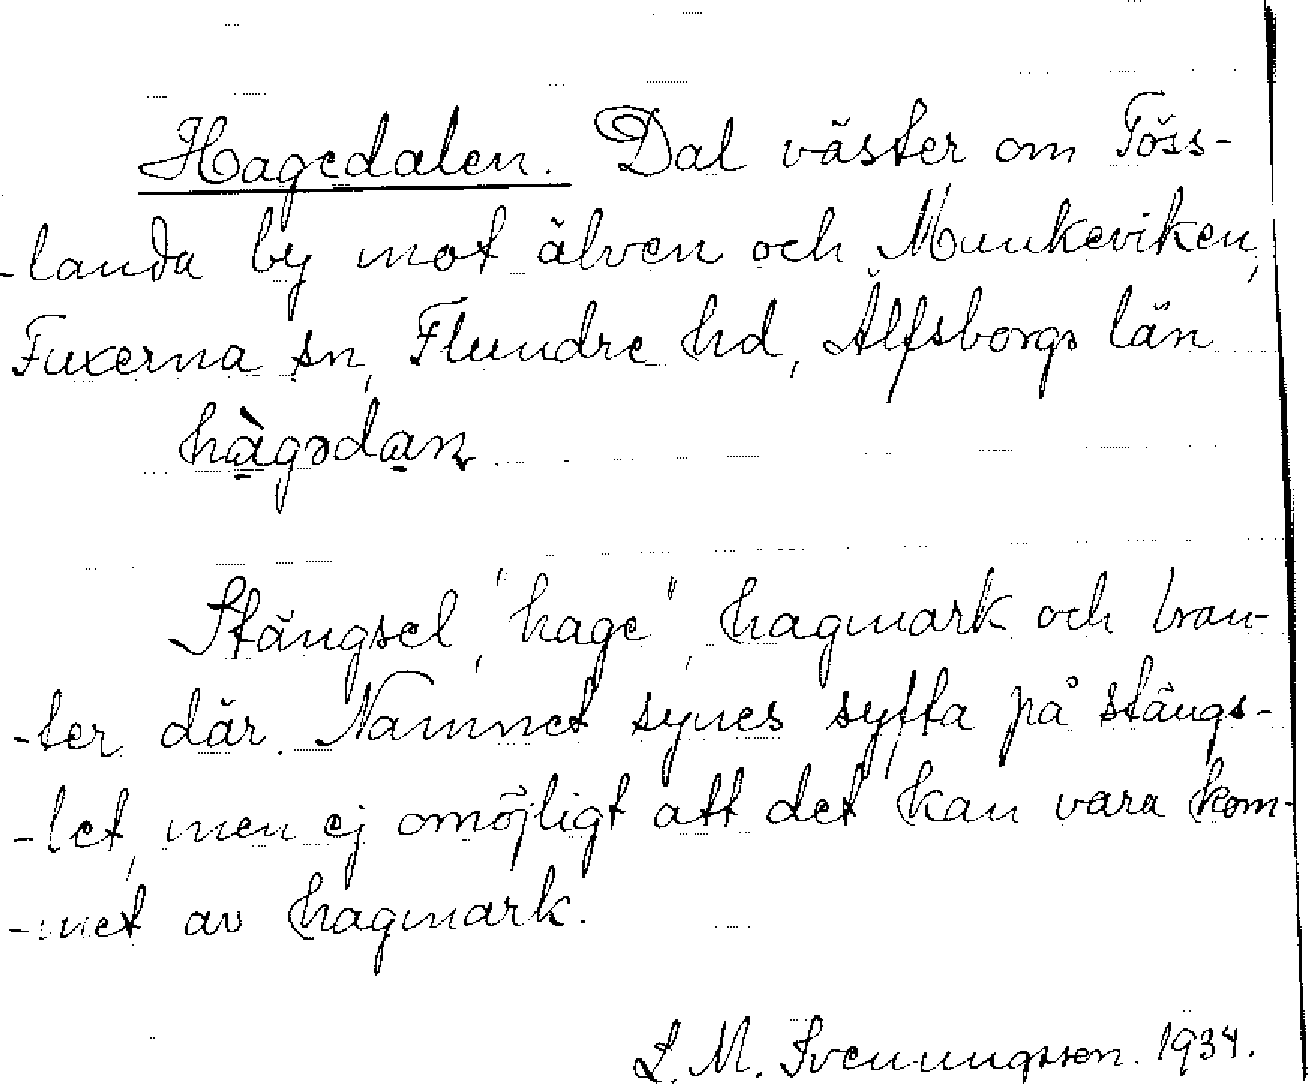 Hagedalen. Dal väster om Töss-
-landa by mot älven och Munkeviken,
Fuxerna sn, Flundre hd, Älfsborgs län
hàgədan
Stängsel, "hage", hagmark och bran-
-ter där. Namnet synes syfta på stängs-
-let, men ej omöjligt att det kan vara kom-
-met av hagmark.
L. M. Svenungsson. 1934.